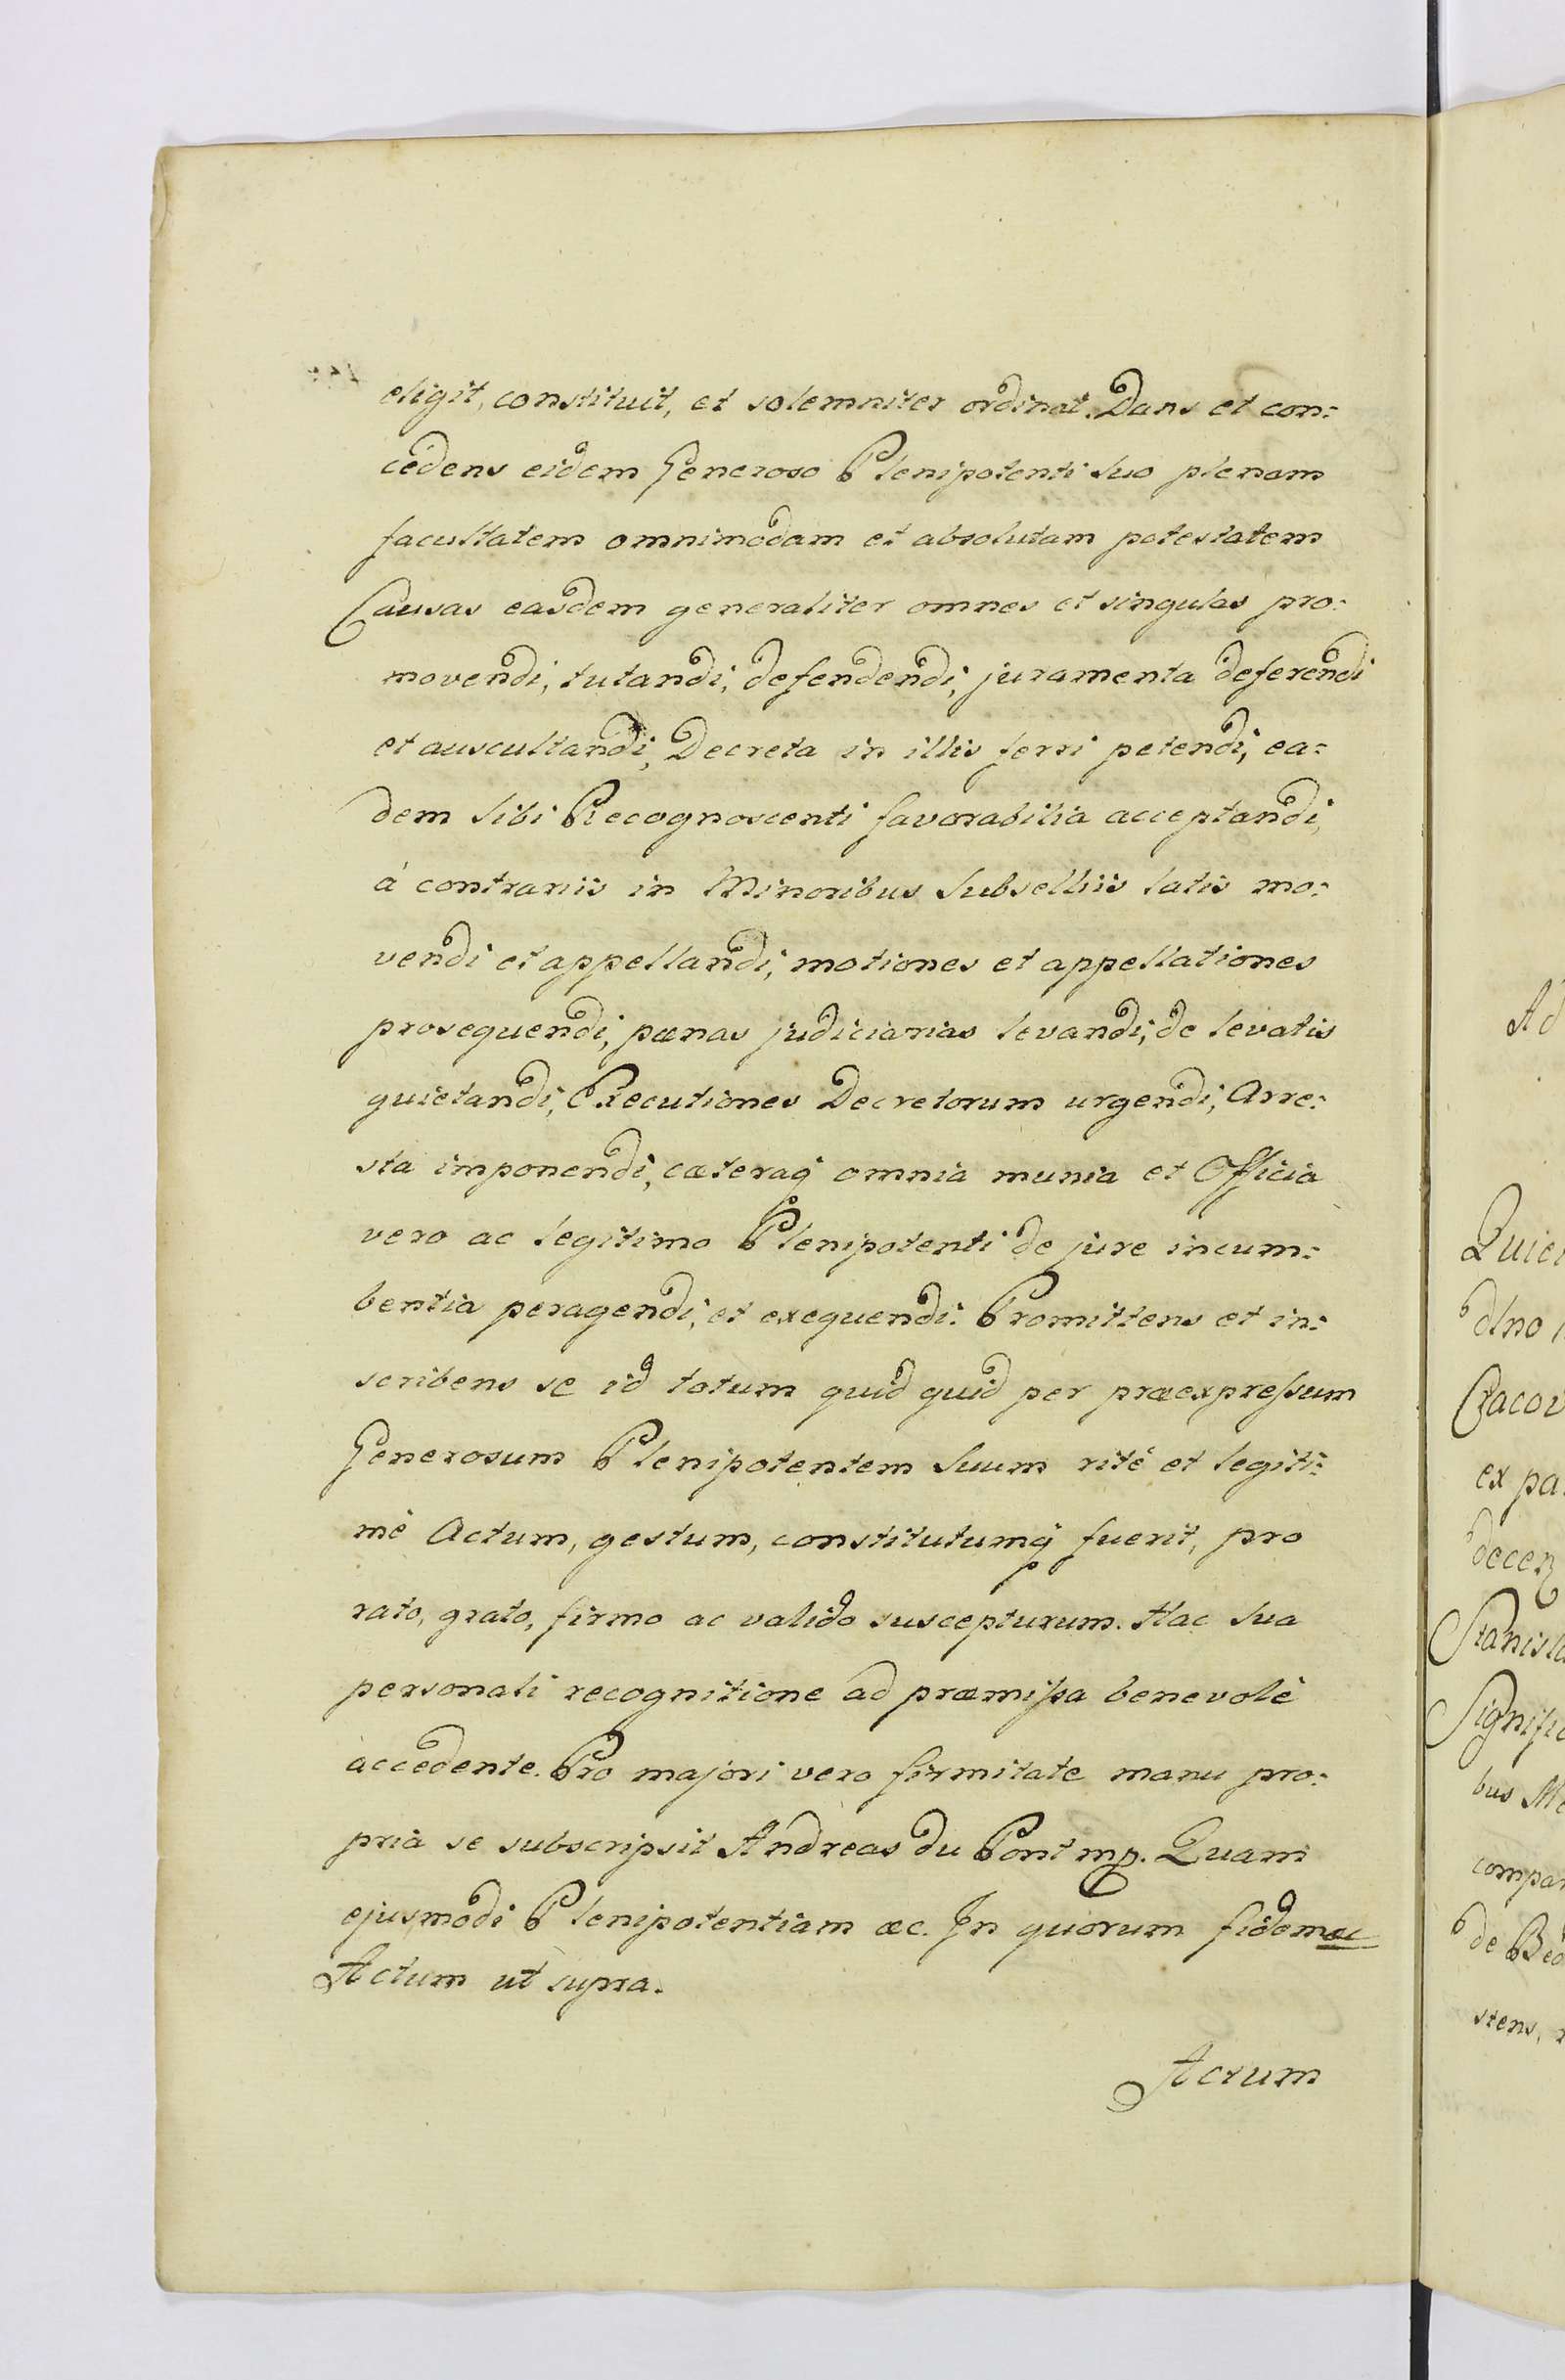 eligit, constituit, et solemniter ordinat. Dans et con:
cedens eidem Generoso Plenipotenti Suo plenam
facultatem omnimodam et absolutam potestatem
Causas easdem generaliter omnes et singulas pro:
movendi, tutandi, defendendi, juramenta deferendi
et auscultandi, Decreta in illis ferri petendi, ea:
dem Sibi Recognoscenti favorabilia acceptandi,
à contrariis in Minoribus Subselliis latis mo:
vendi et appellandi, motiones et appellationes
prosequendi, pænas judiciarias levandi, de levatis
quietandi, Executiones Decretorum urgendi, Arre:
sta imponendi, cæteraq omnia munia et Officia
vero ac legitimo Plenipotenti de jure incum:
bentia peragendi, et exequendi. Promittens et in:
scribens se id totum quid quid per præexpreſsum
Generosum Plenipotentem Suum rité et legiti:
mè Actum, gestum, constitutumq fuerit, pro
rato, grato, firmo ac valido suscepturum. Hac Sua
personali recognitione ad præmiſsa benevolè
accedente. Pro majori vero firmitate manu pro:
pria se subscripsit Andreas du Pont mp. Quam
ejusmodi Plenipotentiam æc. In quorum fidem æc
Actum ut supra.
Actum
Ad
Quie
dlno
Cracov
ex pa
decer
Stanisla
Signific
bus M
compar
de Bed
stens,